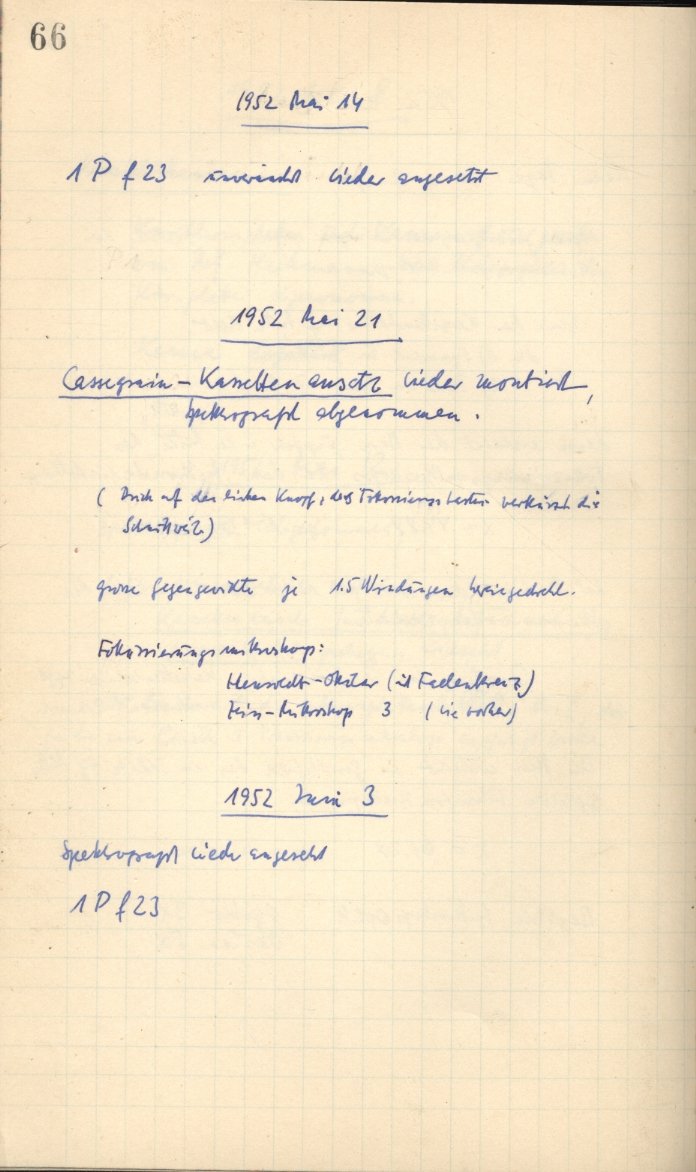 66
1952 Mai 14
1 P f 23 unverändert wieder angesetzt
1952 Mai 21
Cassegrain-Kassettenansatz wieder montiert,
Spektrograph abgenommen.
( Druck auf den linken Knopf, des Fokussierungstasters verkürzt die
Schnittweite)
grosse Gegengewichte je 1.5 Windungen hereingedreht.
Fokussierungsmikroskop:
Hensoldt-Okular (mit Fadenkreuz)
Zeiss-Mikroskop 3 (wie vorher)
1952 Juni 3
Spektrograph wieder angesetzt
1 P f 23